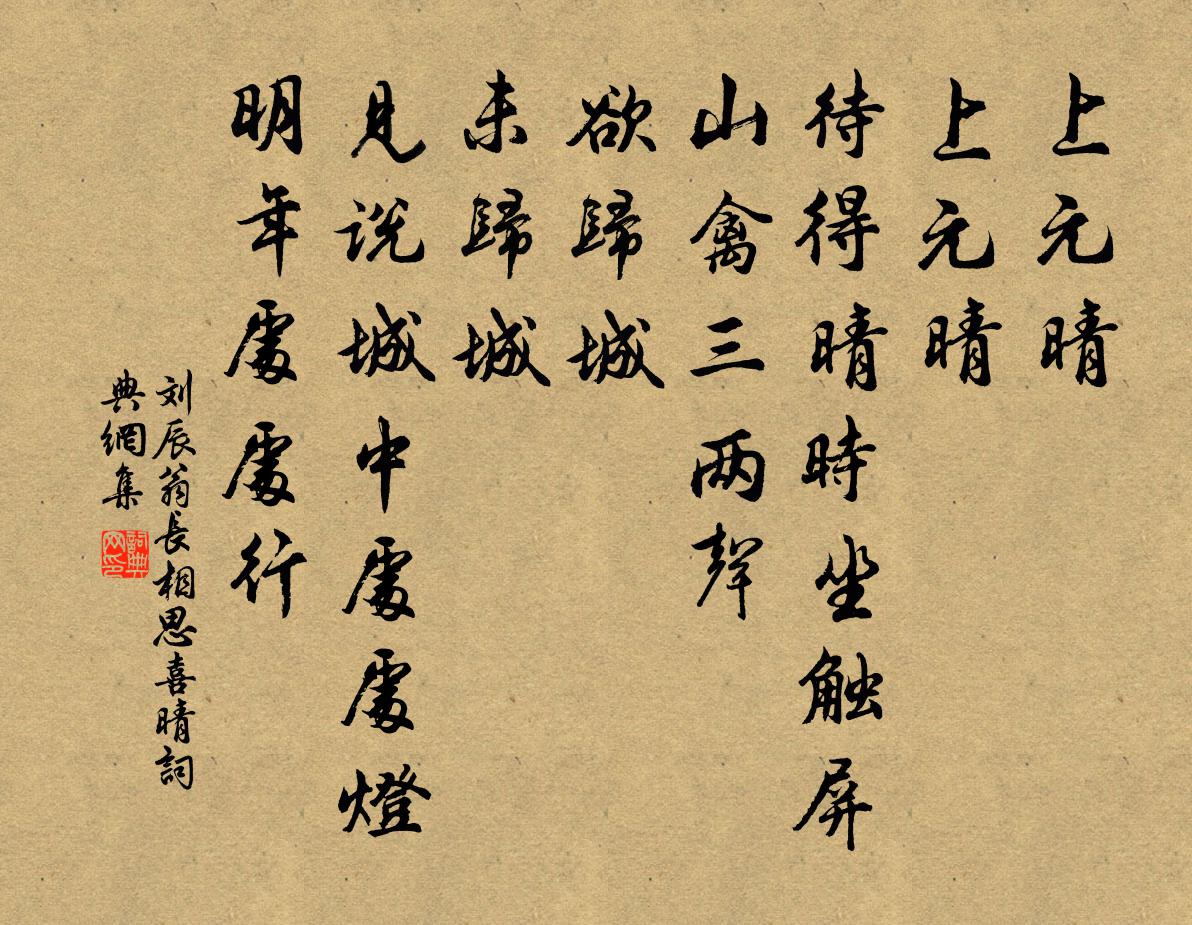 上元晴
上元晴
待得晴時坐触屏
山禽三两聲
欲歸城
未歸城
見說城中處處燈
明年處處行
刘辰翁長相思喜晴詞
典網集
詞典网印